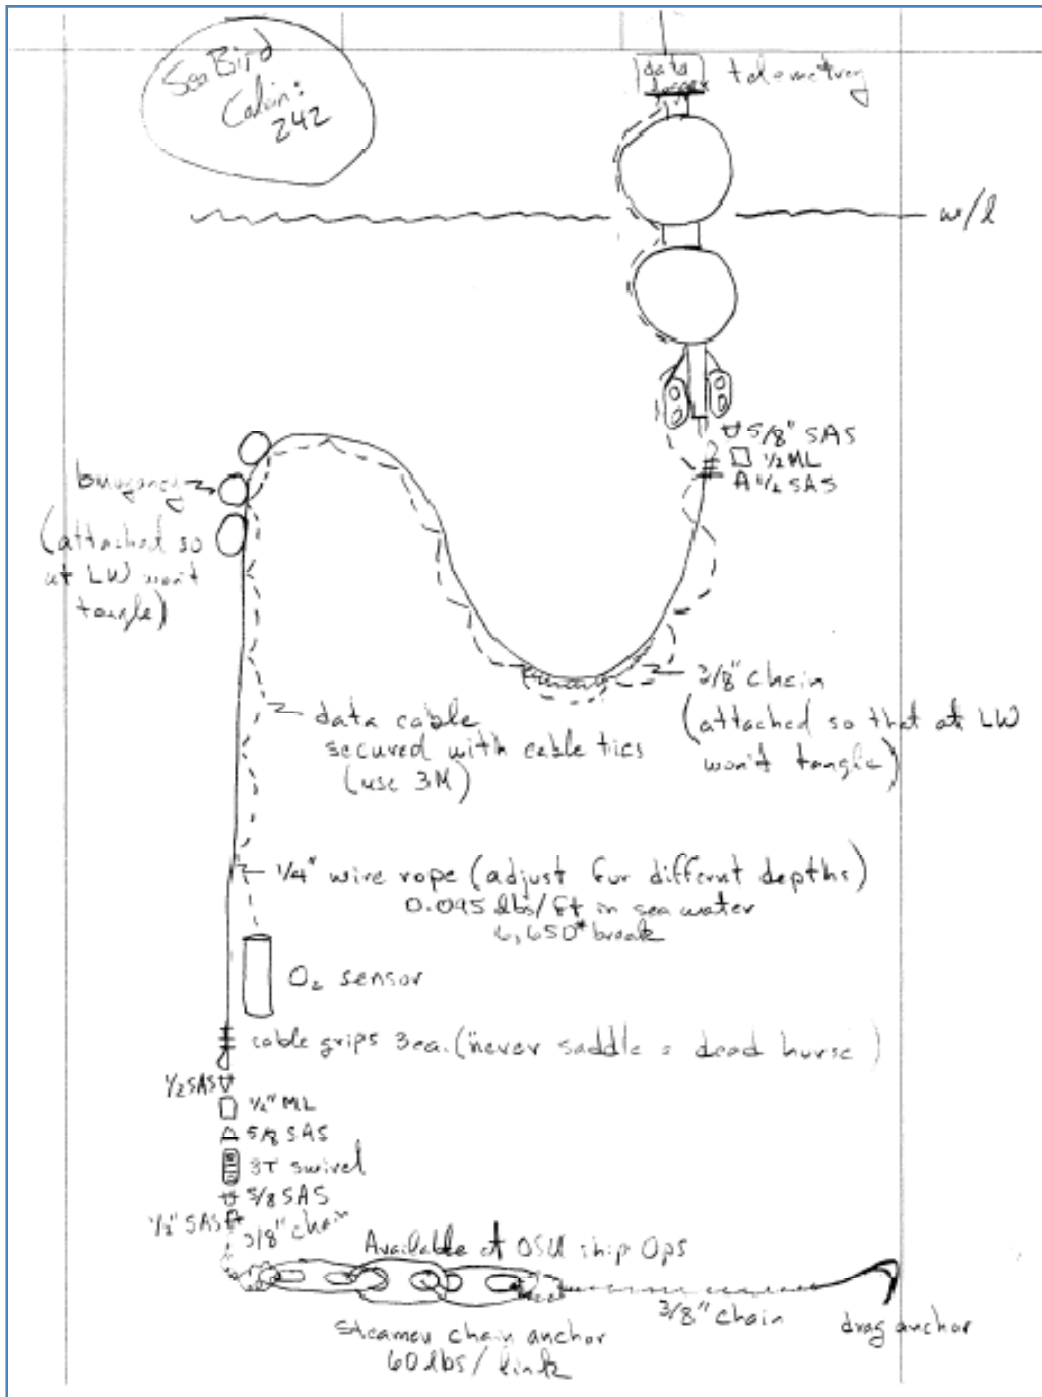 Sea Bird
242
data
logger
telemetrey
w/l
5/8" SAS
1/2 ML
1/2 SAS
buoyancy
(attached so
at LW won't
tangle)
3/8" chain
(attached so that at LW
won't tangle)
data cable
secured with cable ties
(use 3M)
1/4" wire rope (adjust for different depths)
0.095 lbs/ft in sea water
6,650# break
O₂ sensor
cable grips 3ea. ("never saddle a dead horse")
1/2 SAS
1/2" ML
5/8 SAS
3T swivel
5/8 SAS
1/2" SAS
3/8" chain
Available at OSU ship Ops
3/8" chain
drag anchor
chain anchor
60 lbs/link